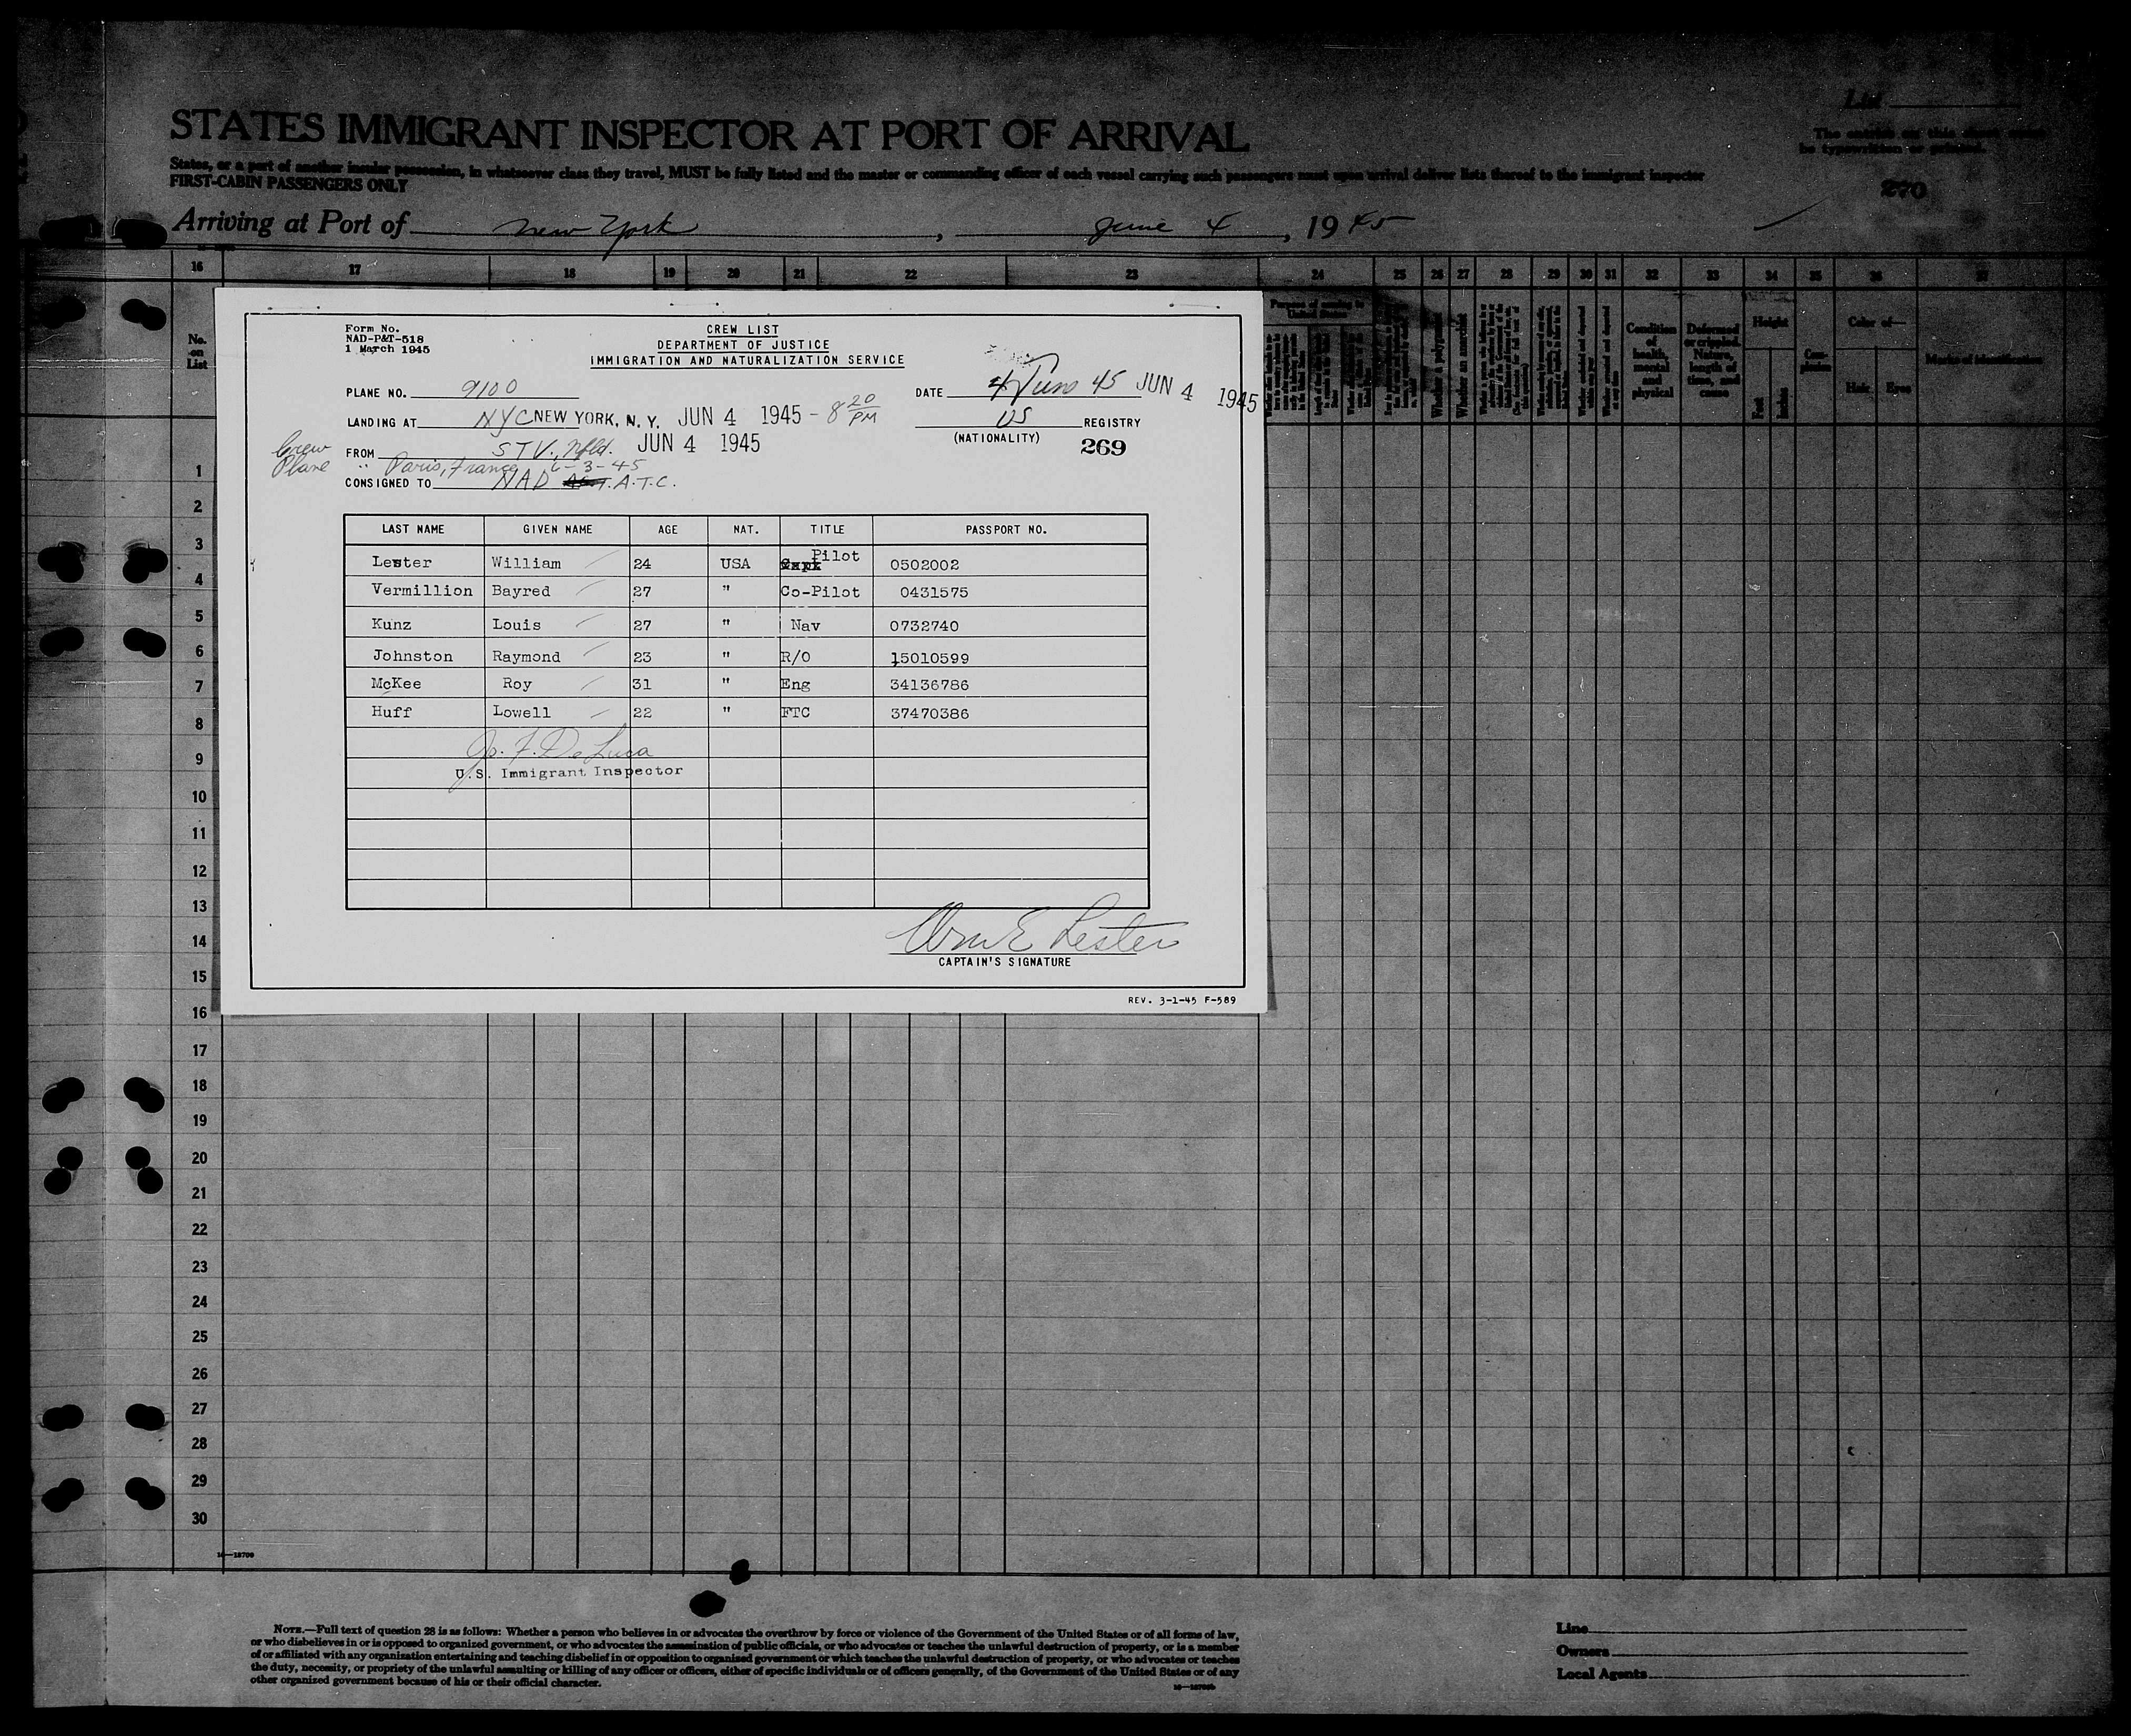 List
STATES IMMIGRANT INSPECTOR AT PORT OF ARRIVAL
The entries on this sheet must
be typewritten or printed.
States, or a port of another insular possession, in whatsoever class they travel, MUST be fully listed and the master or commanding officer of each vessel carrying such passengers must upon arrival deliver lists thereof to the immigrant inspector
FIRST-CABIN PASSENGERS ONLY
270
Arriving at Port of New York, June 4, 1945
16 17 18 19 20 21 22 23 24 25 26 27 28 29 30 31 32 33 34 35 36 37
No. on List
Purpose of coming to United States
Whether a polygamist
Whether an anarchist
Condition of health, mental and physical
Deformed or crippled. Nature, length of time, and cause
Height
Feet
Inches
Complexion
Color of—
Hair
Eyes
Marks of identification
Form No.
NAD-P&T-518
1 March 1945
CREW LIST
DEPARTMENT OF JUSTICE
IMMIGRATION AND NATURALIZATION SERVICE
PLANE NO. 9100
DATE 4 Jun 45 JUN 4 1945
LANDING AT NYC NEW YORK, N. Y. JUN 4 1945 - 8 20 PM
US REGISTRY
(NATIONALITY)
269
Crew FROM STV., Nfld. JUN 4 1945
Plane " Paris, France 6-3-45
CONSIGNED TO NAD A.T.C.
LAST NAME GIVEN NAME AGE NAT. TITLE PASSPORT NO.
Lester William 24 USA Pilot 0502002
Vermillion Bayred 27 " Co-Pilot 0431575
Kunz Louis 27 " Nav 0732740
Johnston Raymond 23 " R/O 15010599
McKee Roy 31 " Eng 34136786
Huff Lowell 22 " FTC 37470386
Jo. F. DeLuca
U.S. Immigrant Inspector
Wm E Lester
CAPTAIN'S SIGNATURE
REV. 3-1-45 F-589
1
2
3
4
5
6
7
8
9
10
11
12
13
14
15
16
17
18
19
20
21
22
23
24
25
26
27
28
29
30
16—18700
NOTE.—Full text of question 28 is as follows: Whether a person who believes in or advocates the overthrow by force or violence of the Government of the United States or of all forms of law,
or who disbelieves in or is opposed to organized government, or who advocates the assassination of public officials, or who advocates or teaches the unlawful destruction of property, or is a member
of or affiliated with any organization entertaining and teaching disbelief in or opposition to organized government or which teaches the unlawful destruction of property, or who advocates or teaches
the duty, necessity, or propriety of the unlawful assaulting or killing of any officer or officers, either of specific individuals or of officers generally, of the Government of the United States or of any
other organized government because of his or their official character.
Line
Owners
Local Agents